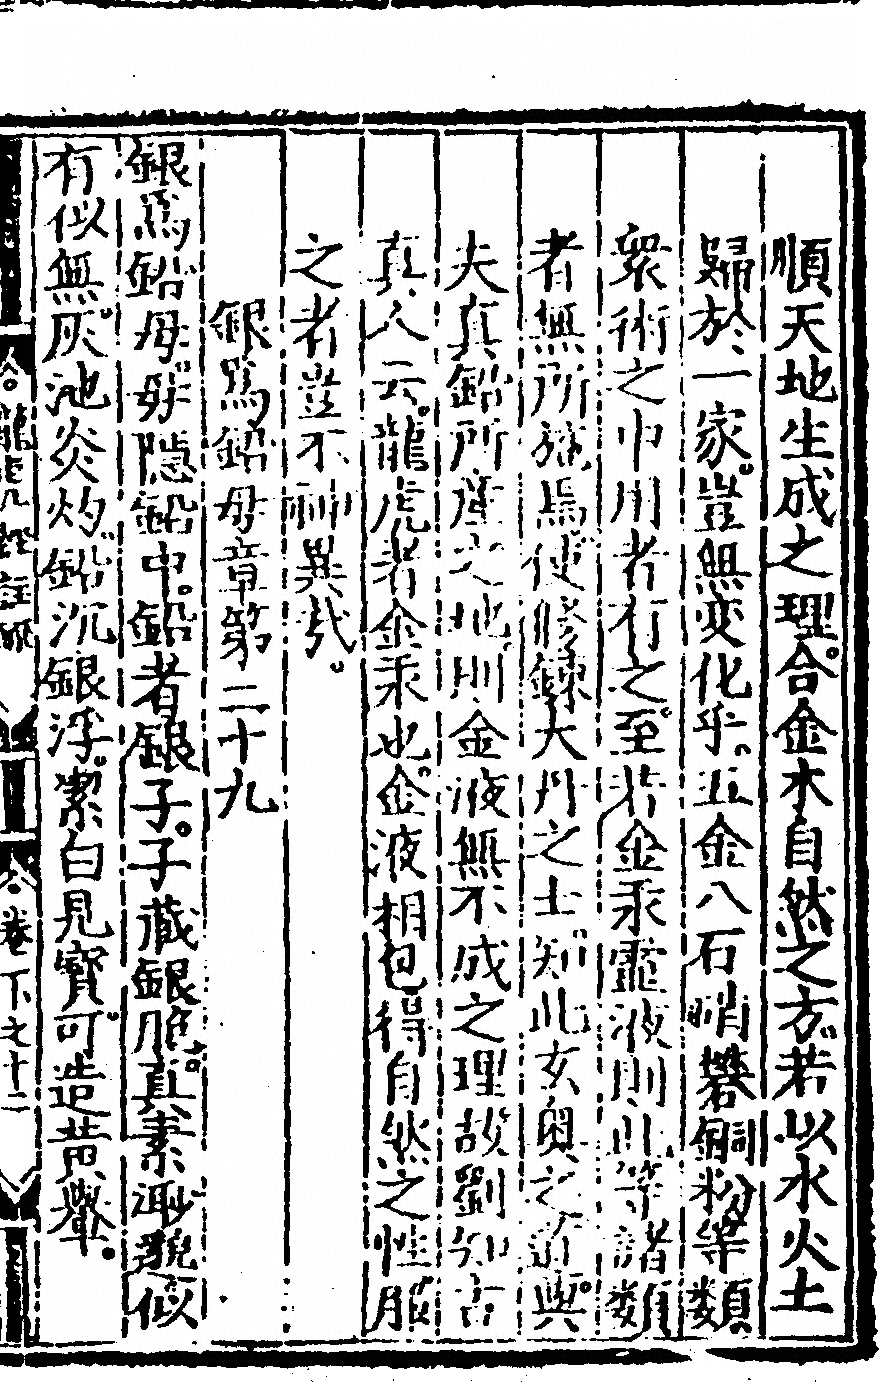 順天地生成之理合金木自然之方若以水火土
歸於一家豈無変化乎五金八石硝礬銅粉等類
衆術之中用者有之至若金汞靈液則此等諸類
者無所施焉使修鍊大丹之士知此玄奥之㫖與
夫真鉛所產之地則金液無不成之理故劉知古
真人云龍虎者金汞也金液相包得自然之性服
之者豈不神異哉
銀爲鉛母章第二十九
銀爲鉛母母隱鉛中鉛者銀子子藏銀胞真素渺邈似
有似無灰池炎灼鉛沉銀浮潔白見寳可造黃轝
龍虎經註疏 卷下之十二